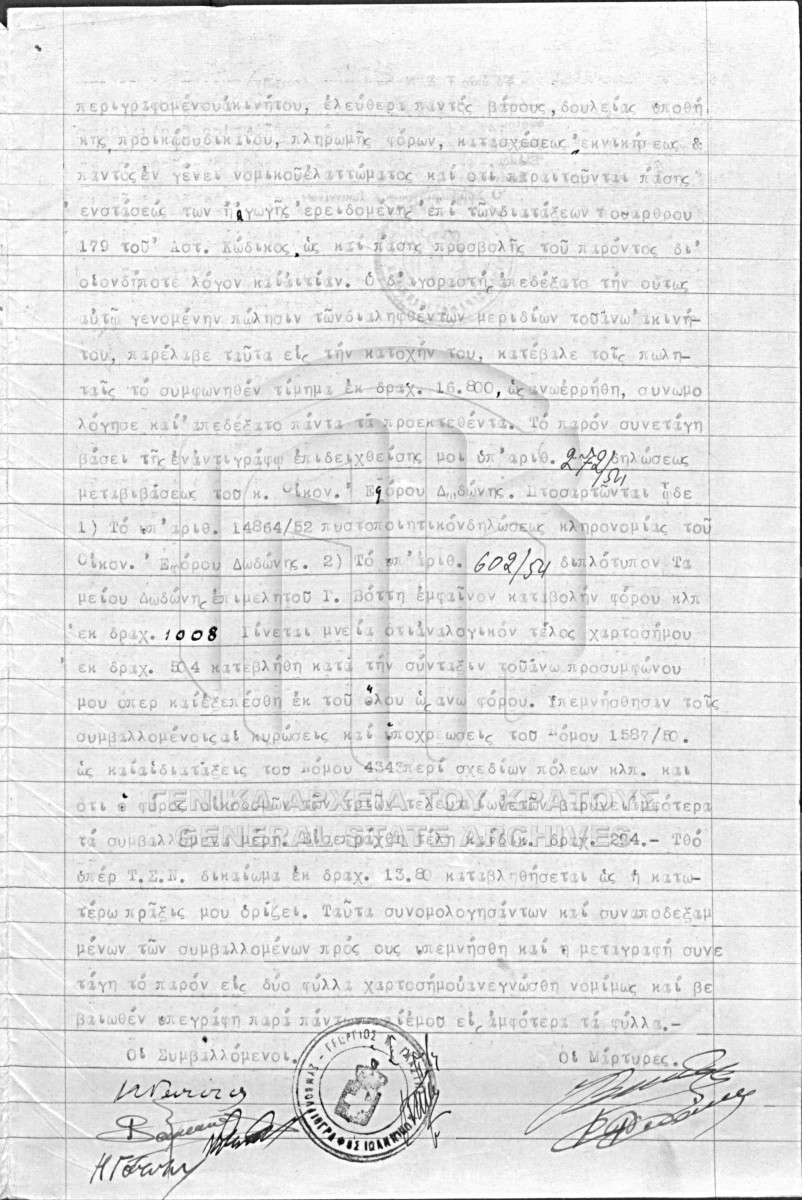 περιγραφομένουἀκινήτου, ἐλεύθερα παντός βάρους, δουλείας ὑποθή
κης, προικῴουδικαίου, πληρωμῆς φόρων, κατασχέσεως ἐκνικήσεως &
παντόςἐν γένει νομικοῦἐλαττώματος καί ὅτι παραιτοῦνται πάσης
ἐνστάσεώς των ἤ ἀγωγῆς ἐρειδομένης ἐπί τῶνδιατάξεων τοῦἄρθρου
179 τοῦ Ἀστ. Κώδικος, ὡς καί πάσης προσβολῆς τοῦ παρόντος δι'
οἱονδήποτε λόγον καίαἰτίαν. Ὁ δ'ἀγοραστής ἀπεδέξατο τήν οὕτως
αὐτῷ γενομένην πώλησιν τῶνδιαληφθέντων μεριδίων τοῦἄνω ἀκινή-
του, παρέλαβε ταῦτα εἰς τήν κατοχήν του, κατέβαλε τοῖς πωλη-
ταῖς τό συμφωνηθέν τίμημα ἐκ δραχ. 16.800, ὡςἀνωἐρρήθη, συνωμο
λόγησε καί ἀπεδέξατο πάντα τά προεκτεθέντα. Τό παρόν συνετάγη
βάσει τῆς ἐνἀντιγράφῳ ἐπιδειχθείσης μοι ὑπ'ἀριθ. 272/54 δηλώσεως
μεταβιβάσεως τοῦ κ. Οἰκον. Ἐφόρου Δωδώνης. Προσαρτῶνται ὧδε
1) Τό ὑπ'ἀριθ. 14864/52 πυστοποιητικόνδηλώσεως κληρονομίας τοῦ
Οἰκον. Ἐφόρου Δωδώνης. 2) Τό ὑπ'ἀριθ. 602/54 διπλότυπον Τα
μείου Δωδώνης ἐπιμελητοῦ Γ. Βόττη ἐμφαῖνον καταβολήν φόρου κλπ
ἐκ δραχ. 1008 Γίνεται μνεία ὅτιἀναλογικόν τέλος χαρτοσήμου
ἐκ δραχ. 504 κατεβλήθη κατά τήν σύνταξιν τοῦἄνω προσυμφώνου
μου ὅπερ καίἐξεπέσθη ἐκ τοῦ ὅλου ὡς ἄνω φόρου. Ὑπεμνήσθησαν τοῖς
συμβαλλομένοιςαἱ κυρώσεις καί ὑποχρεώσεις τοῦ Νόμου 1587/50.
ὡς καίαἱδιατάξεις τοῦ Νόμου 4343περί σχεδίων πόλεων κλπ. καί
ὅτι ὁ φόρος οἰκοδομῶν τῶν τριῶν τελευταίωνἐτῶν βαρύνει ἀμφότερα
τά συμβαλλόμενα μέρη. Εἰσεπράχθη τέλη καίδικ. δραχ. 294.- Τθό
ὑπέρ Τ.Σ.Ν. δικαίωμα ἐκ δραχ. 13.80 καταβληθήσεται ὡς ἡ κατω-
τέρω πρᾶξις μου ὁρίζει. Ταῦτα συνομολογησάντων καί συναποδεξαμ
μένων τῶν συμβαλλομένων πρός οὕς ὑπεμνήσθη καί ἡ μεταγραφή συνε
τάγη τό παρόν εἰς δύο φύλλα χαρτοσήμουἀνεγνώσθη νομίμως καί βε
βαιωθέν ὑπεγράφη παρά πάντων καίἐμοῦ εἰς ἀμφότερα τά φύλλα.-
Οἱ Συμβαλλόμενοι.
Οἱ Μάρτυρες.
ΓΕΝΙΚΑ ΑΡΧΕΙΑ ΤΟΥ ΚΡΑΤΟΥΣ
GENERAL STATE ARCHIVES